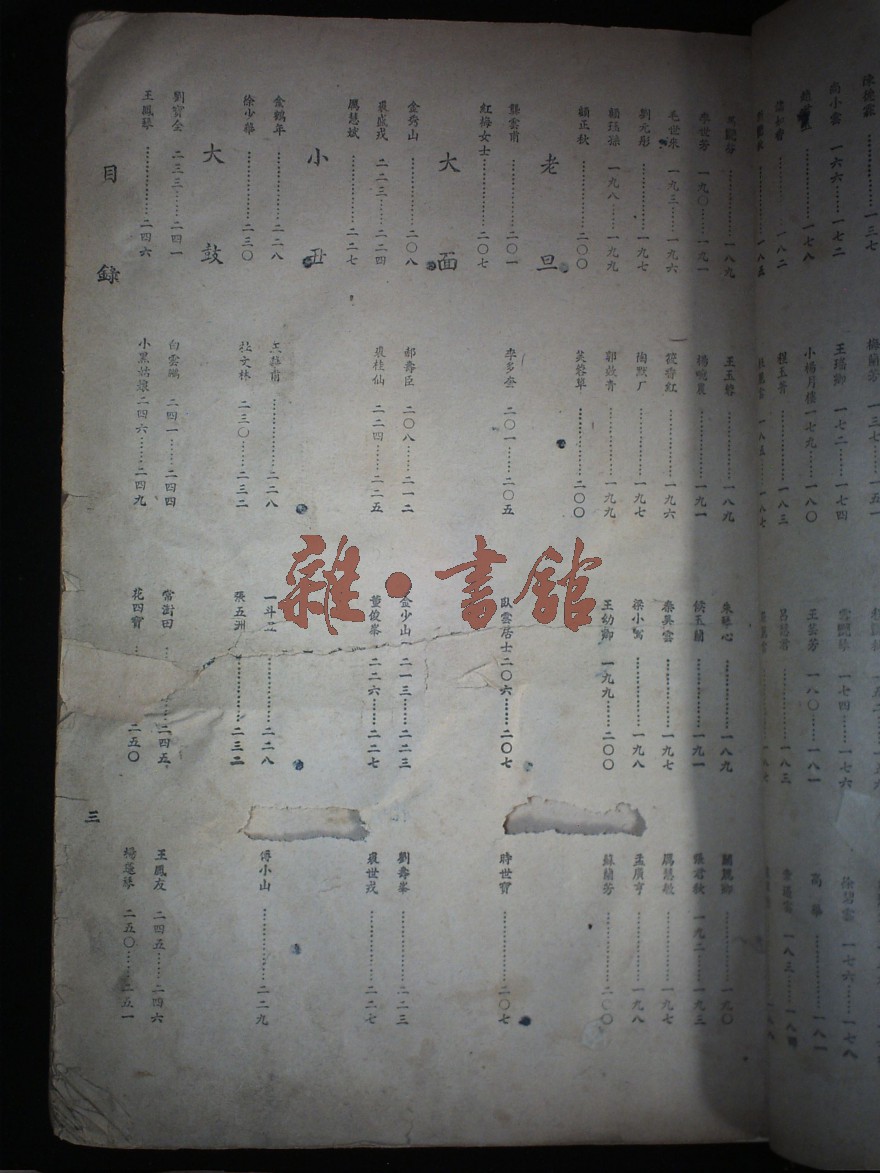 李世芳 一九〇……一九一
毛世來 一九三……一九六
劉元彤…………一九七
顧珏蓀 一九八……一九九
顧正秋…………二〇〇
王玉蓉…………一八九
楊畹農…………一九一
筱翠紅…………一九六
陶默厂…………一九七
郭效青…………一九九
芙蓉草…………二〇〇
朱琴心…………一八九
儲玉蘭…………一九一
秦凤雲…………一九七
梁小鸞…………一九八
王幼卿 一九九……二〇〇
關麗卿…………一九〇
張君秋 一九二……一九三
厲慧敏…………一九七
孟廣亨…………一九八
蘇蘭芳…………二〇〇
老旦
龔雲甫…………二〇一
紅梅女士…………二〇七
李多奎 二〇一……二〇五
臥雲居士二〇六……二〇七
時世寶…………二〇七
大面
金秀山…………二〇八
裘盛戎 二二三……二二四
厲慧斌…………二二七
郝壽臣 二〇八……二一二
裘桂仙 二二四……二二五
金少山 二一三……二二三
董俊峯 二二六……二二七
劉壽峯…………二二三
裘世戎…………二二七
小丑
金鶴年…………二二八
徐少華…………二三〇
…………二二八
杜文林 二三〇……二三二
一斗丑…………二二八
張五洲…………二三二
傅小山…………二二九
大鼓
劉寶全 二三三……二四一
王鳳琴…………二四六
白雲鵬 二四一……二四四
小黑姑娘二四六……二四九
常澍田…………二四五
花四寶…………二五〇
王鳳友 二四五……二四六
楊蓮琴 二五〇……二五一
目錄
三
尚小雲 一六六……一七二
梅蘭芳 一三七……一五一
王瑤卿 一七二……一七四
小楊月樓一七九……一八〇
王芸芳 一八〇……一八一
徐碧雲 一七六……一七八
雜·書館